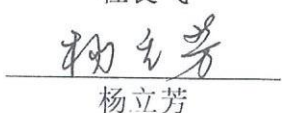 杨立芳
杨立芳